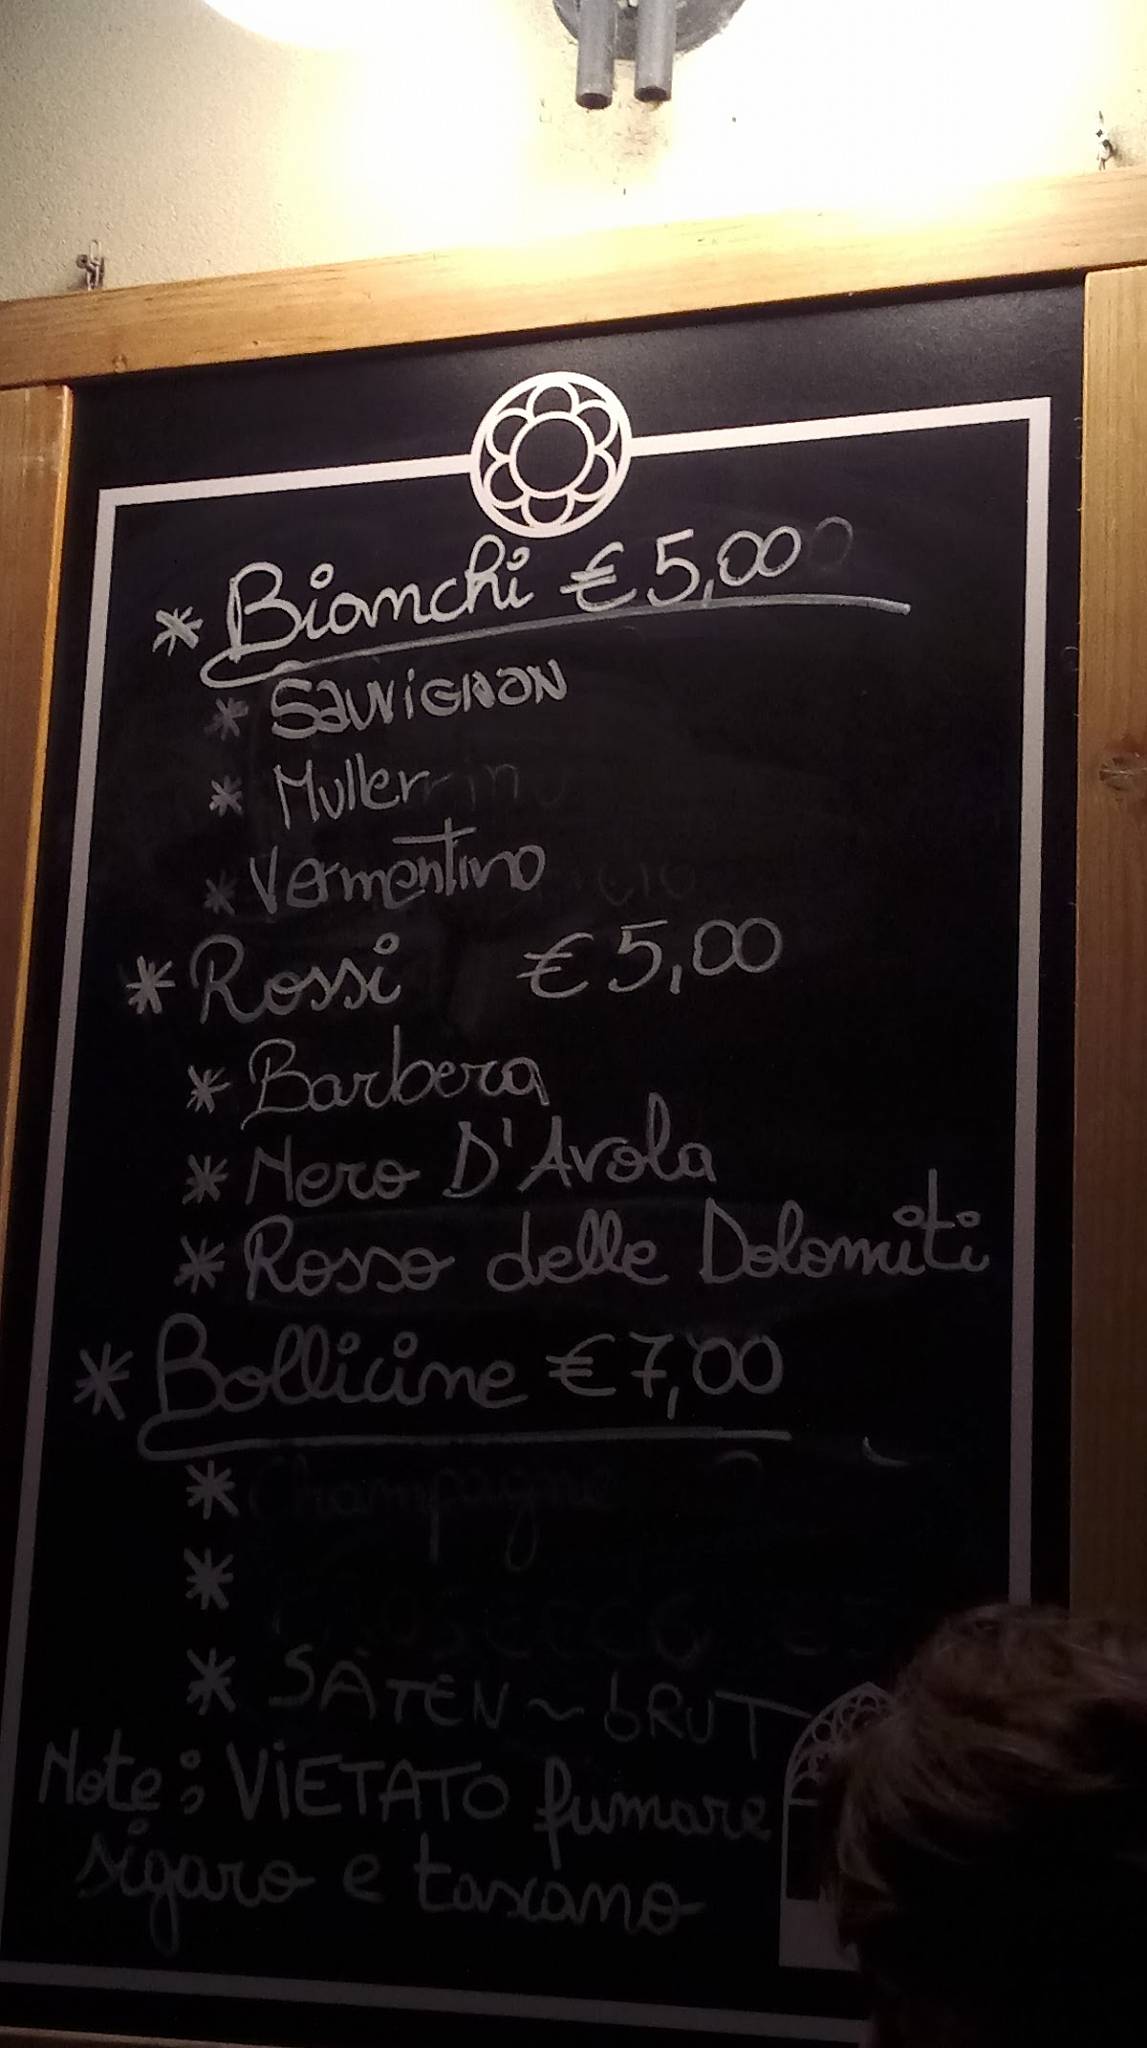 * Bianchi € 5,00
* Sauvignon
* Muller
* Vermentino
* Rossi € 5,00
* Barbera
* Nero D'Avola
* Rosso delle Dolomiti
* Bollicine € 7,00
* Champagne
*
* SATEN ~ bRUT
Note; VIETATO fumare
sigaro e toscano